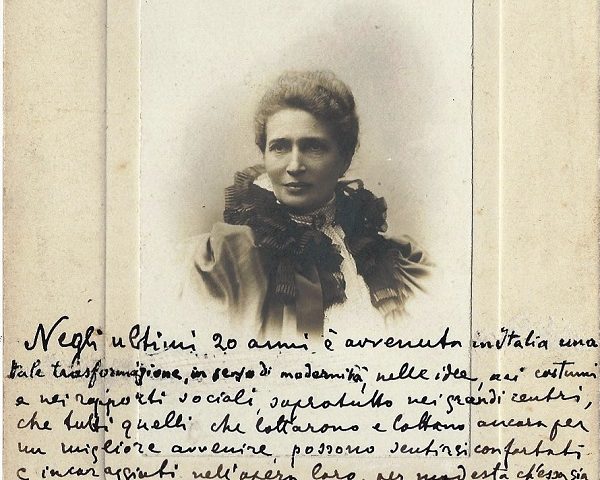 Negli ultimi 20 anni è avvenuta in Italia una
tale trasformazione, in senso di modernità, nelle idee, nei costumi
e nei rapporti sociali, sopratutto nei grandi centri,
che tutti quelli che lottarono e lottano ancora per
un migliore avvenire, possono sentirsi confortati
e incoraggiati nell'opera loro, per modesta ch'essa sia